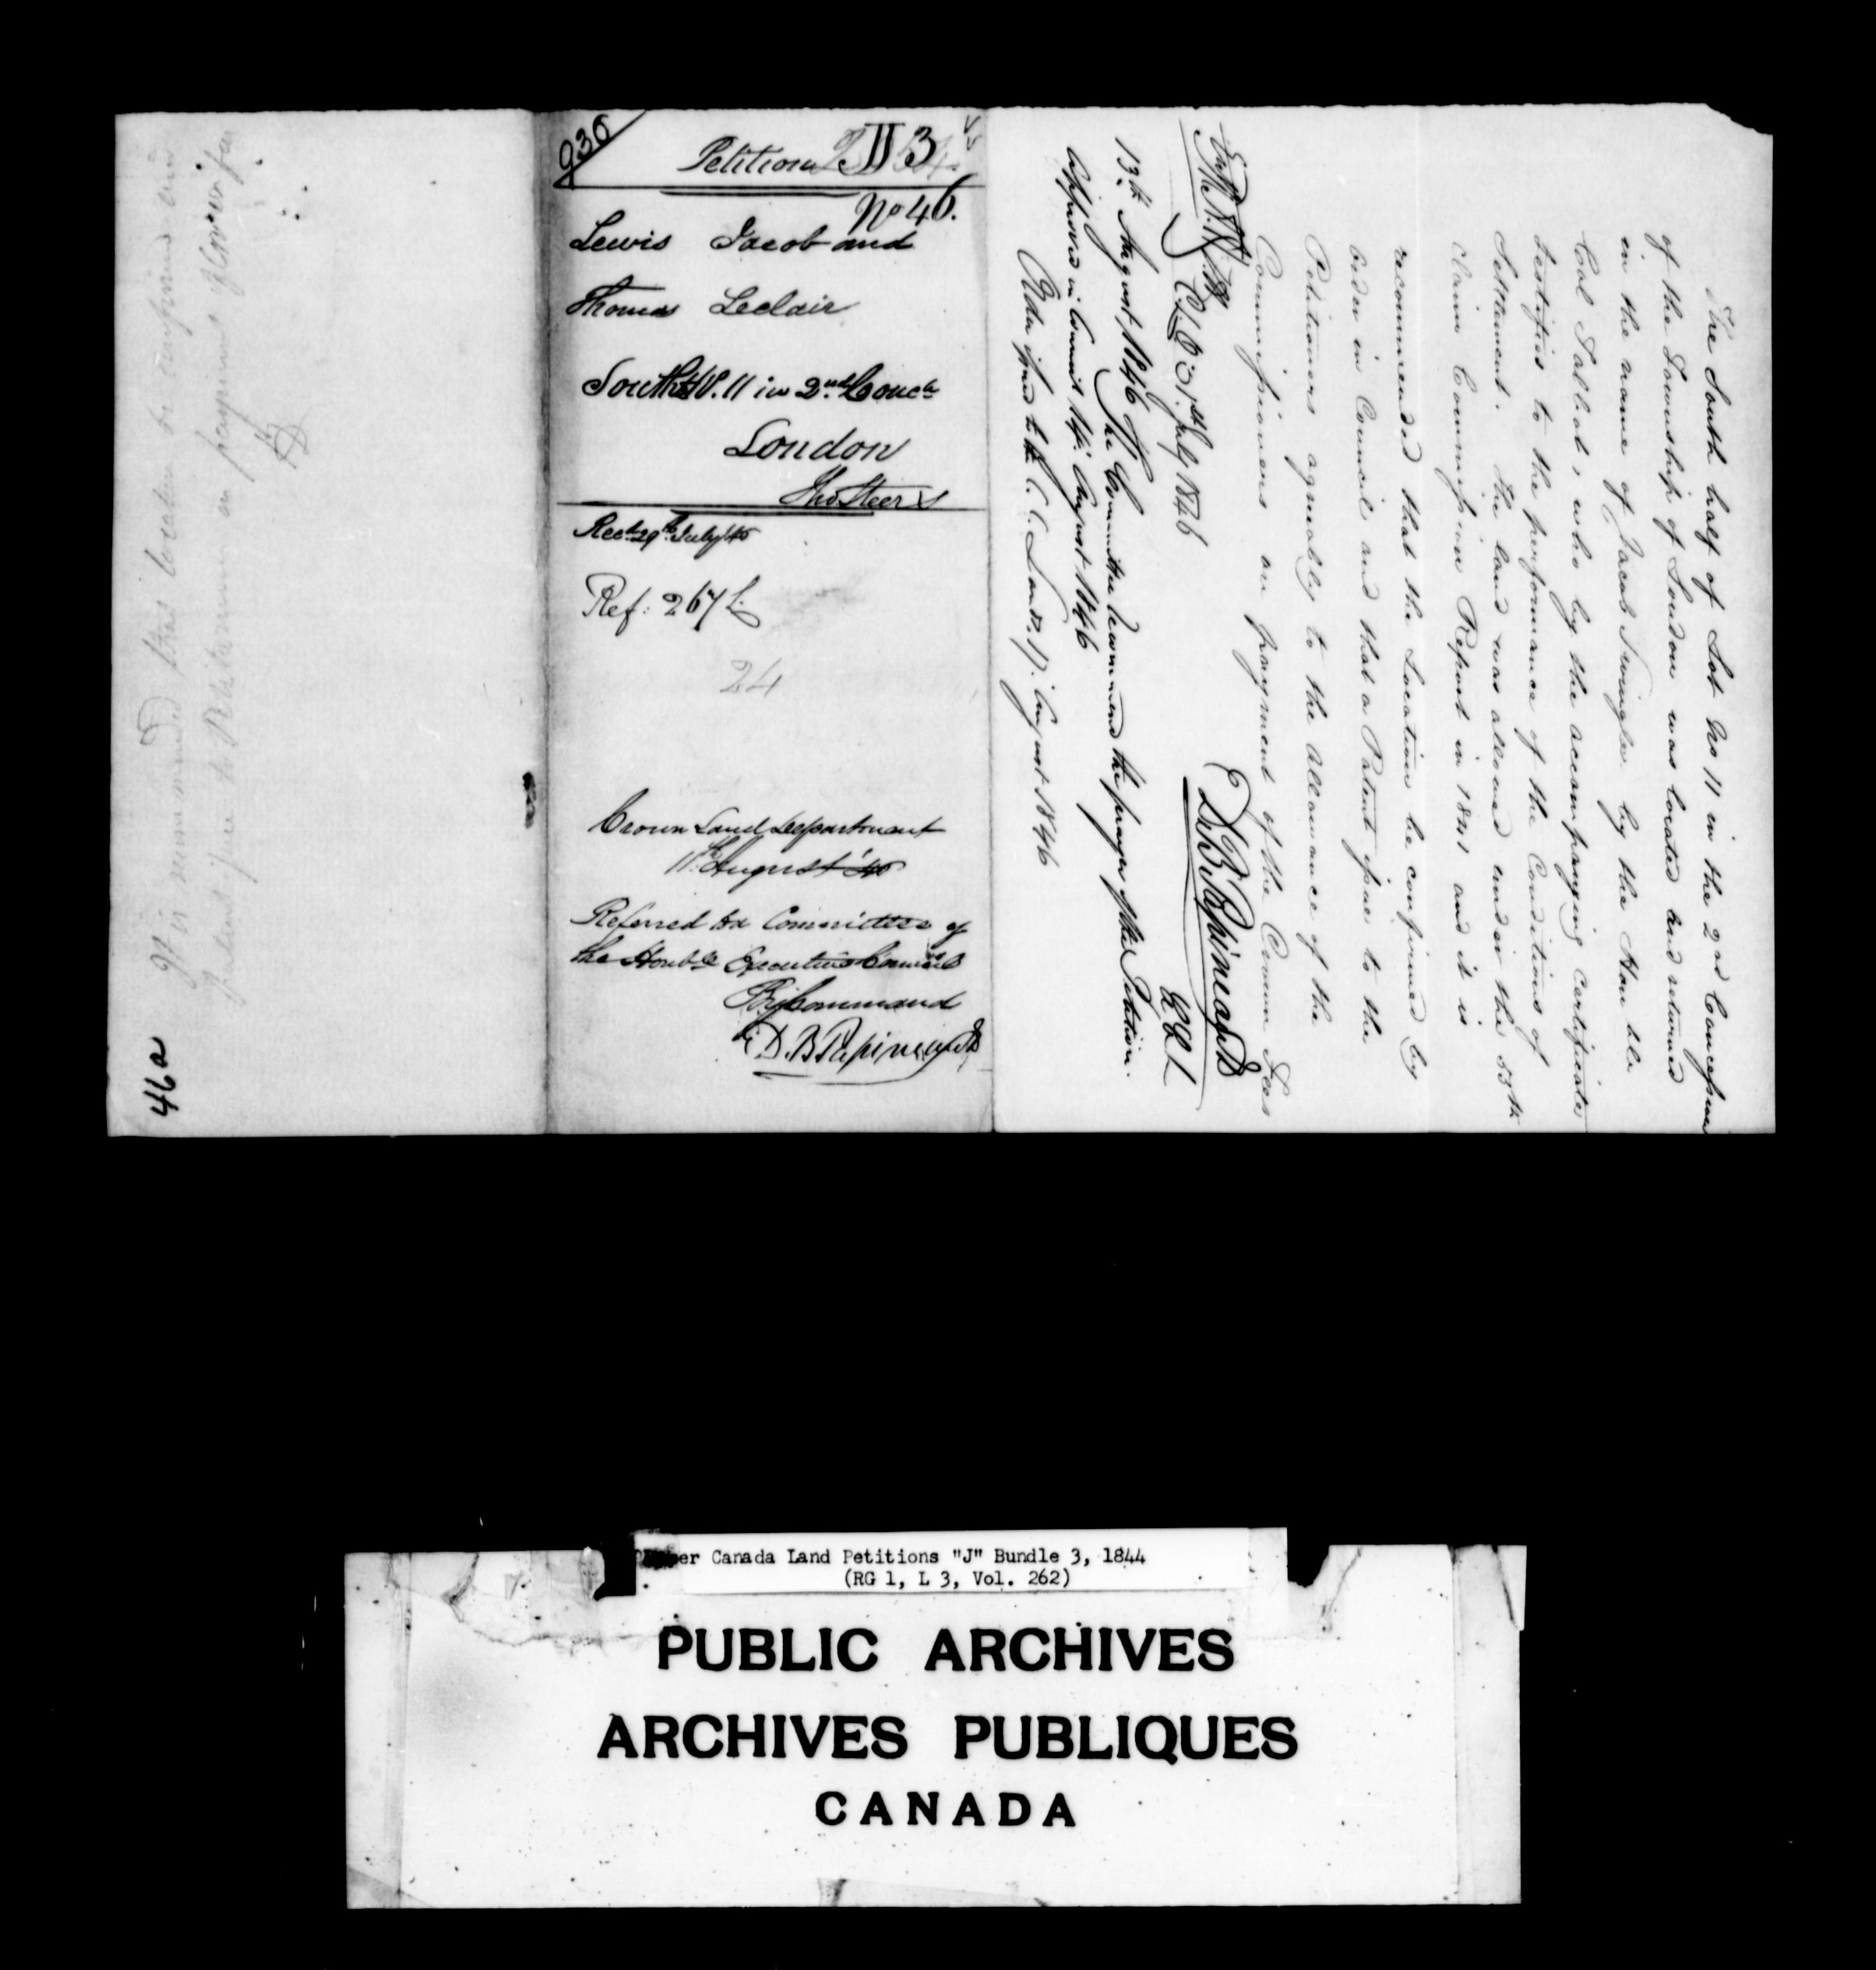 It is recommended this location be confirmed and
patent issue to Petitioners on payment of Com'r's fees
46a
930
Petition J 3
No 46.
Lewis Jacob and
Thomas Leclair
South ½ 11 in 2nd Conc
London
Thos Steers
Recd 29th July 46
Ref: 267 L
24
Crown Land Department
11th August 46
Referred to a Committee of
the Honble Executive Council
By Command
D. B. Papineau
The South half of Lot No 11 in the 2nd Concession
of the Township of London was located and returned
in the name of Jacob Swingler by the Hon'ble
Col Talbot, who by the accompanying certificate
testifies to the performance of the Conditions of
Settlement. The land was allowed under the 53th
claim Commission Report in 1841 and it is
recommended that the Location be confirmed by
Order in Council and that a Patent issue to the
Petitioners agreeably to the Allowance of the
Commissioners on payment of the Comm Fees
D B Papineau
C.L.D 31st July 1846
CCL
13th August 1846 The Committee recommend the prayer of the Petition.
Approved in Council 14 August 1846
Order issued to the C. C. Lands 17 August 1846
Upper Canada Land Petitions "J" Bundle 3, 1844
(RG 1, L 3, Vol. 262)
PUBLIC ARCHIVES
ARCHIVES PUBLIQUES
CANADA